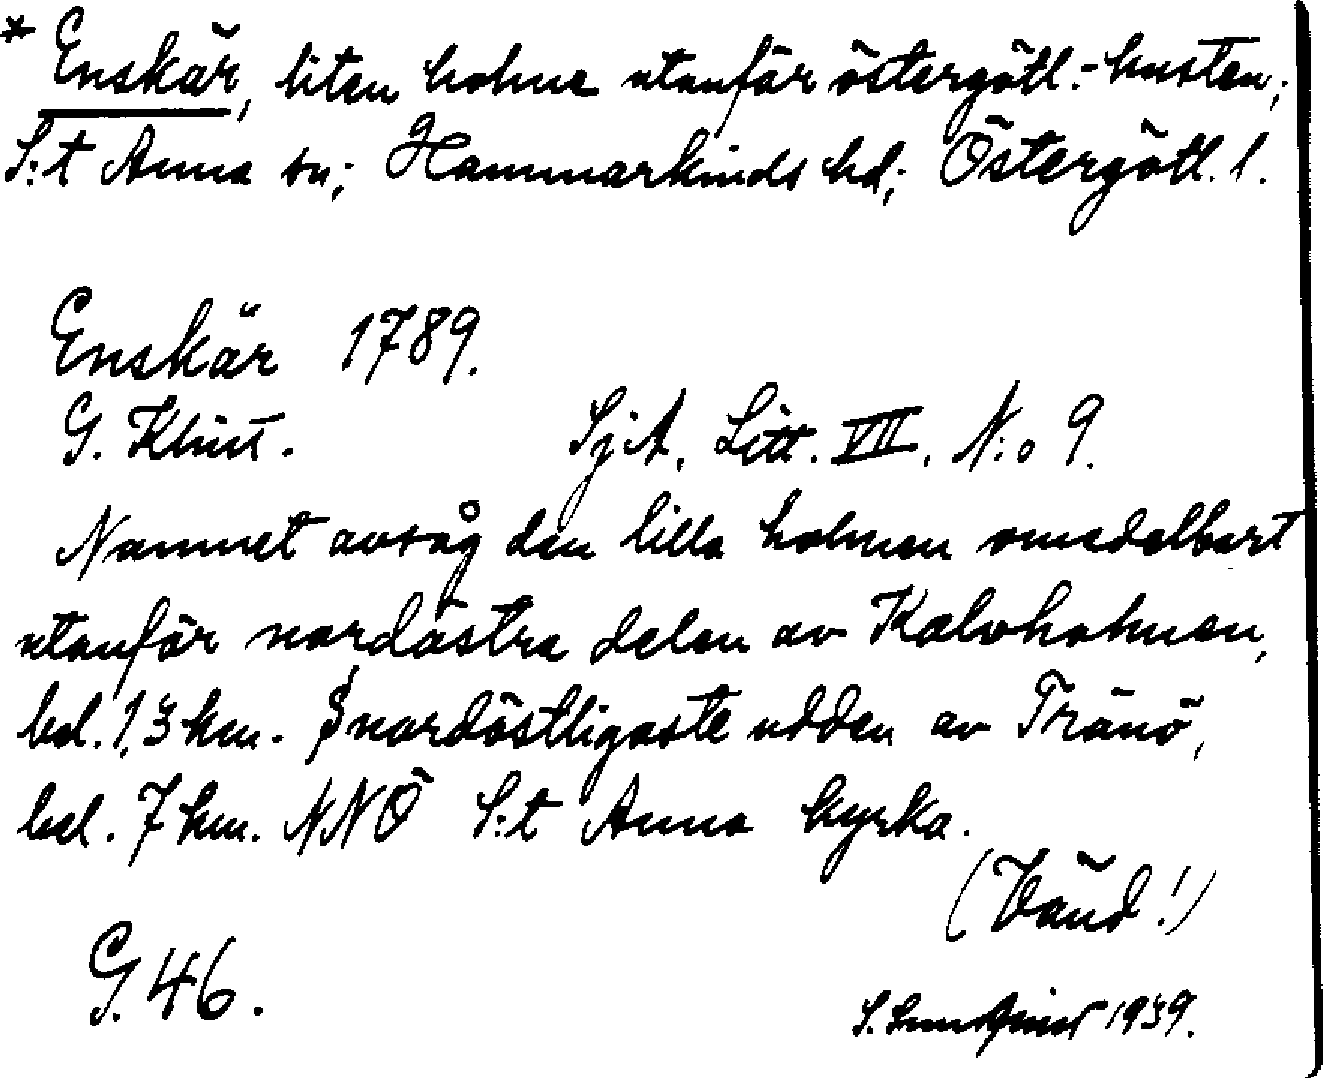 * Enskär, liten holme utanför östergötl.-kusten;
S:t Anna sn; Hammarkinds hd; Östergötl. l.
Enskär 1789.
G. Klint. SjA, Litt. VII, N:o 9.
Namnet avsåg den lilla holmen omedelbart
utanför nordöstra delen av Kalvholmen,
bel. 1,3 km. S nordöstligaste udden av Tränö,
bel. 7 km. NNÖ S:t Anna kyrka.
(Vänd!)
G. 46.
S. 1939.